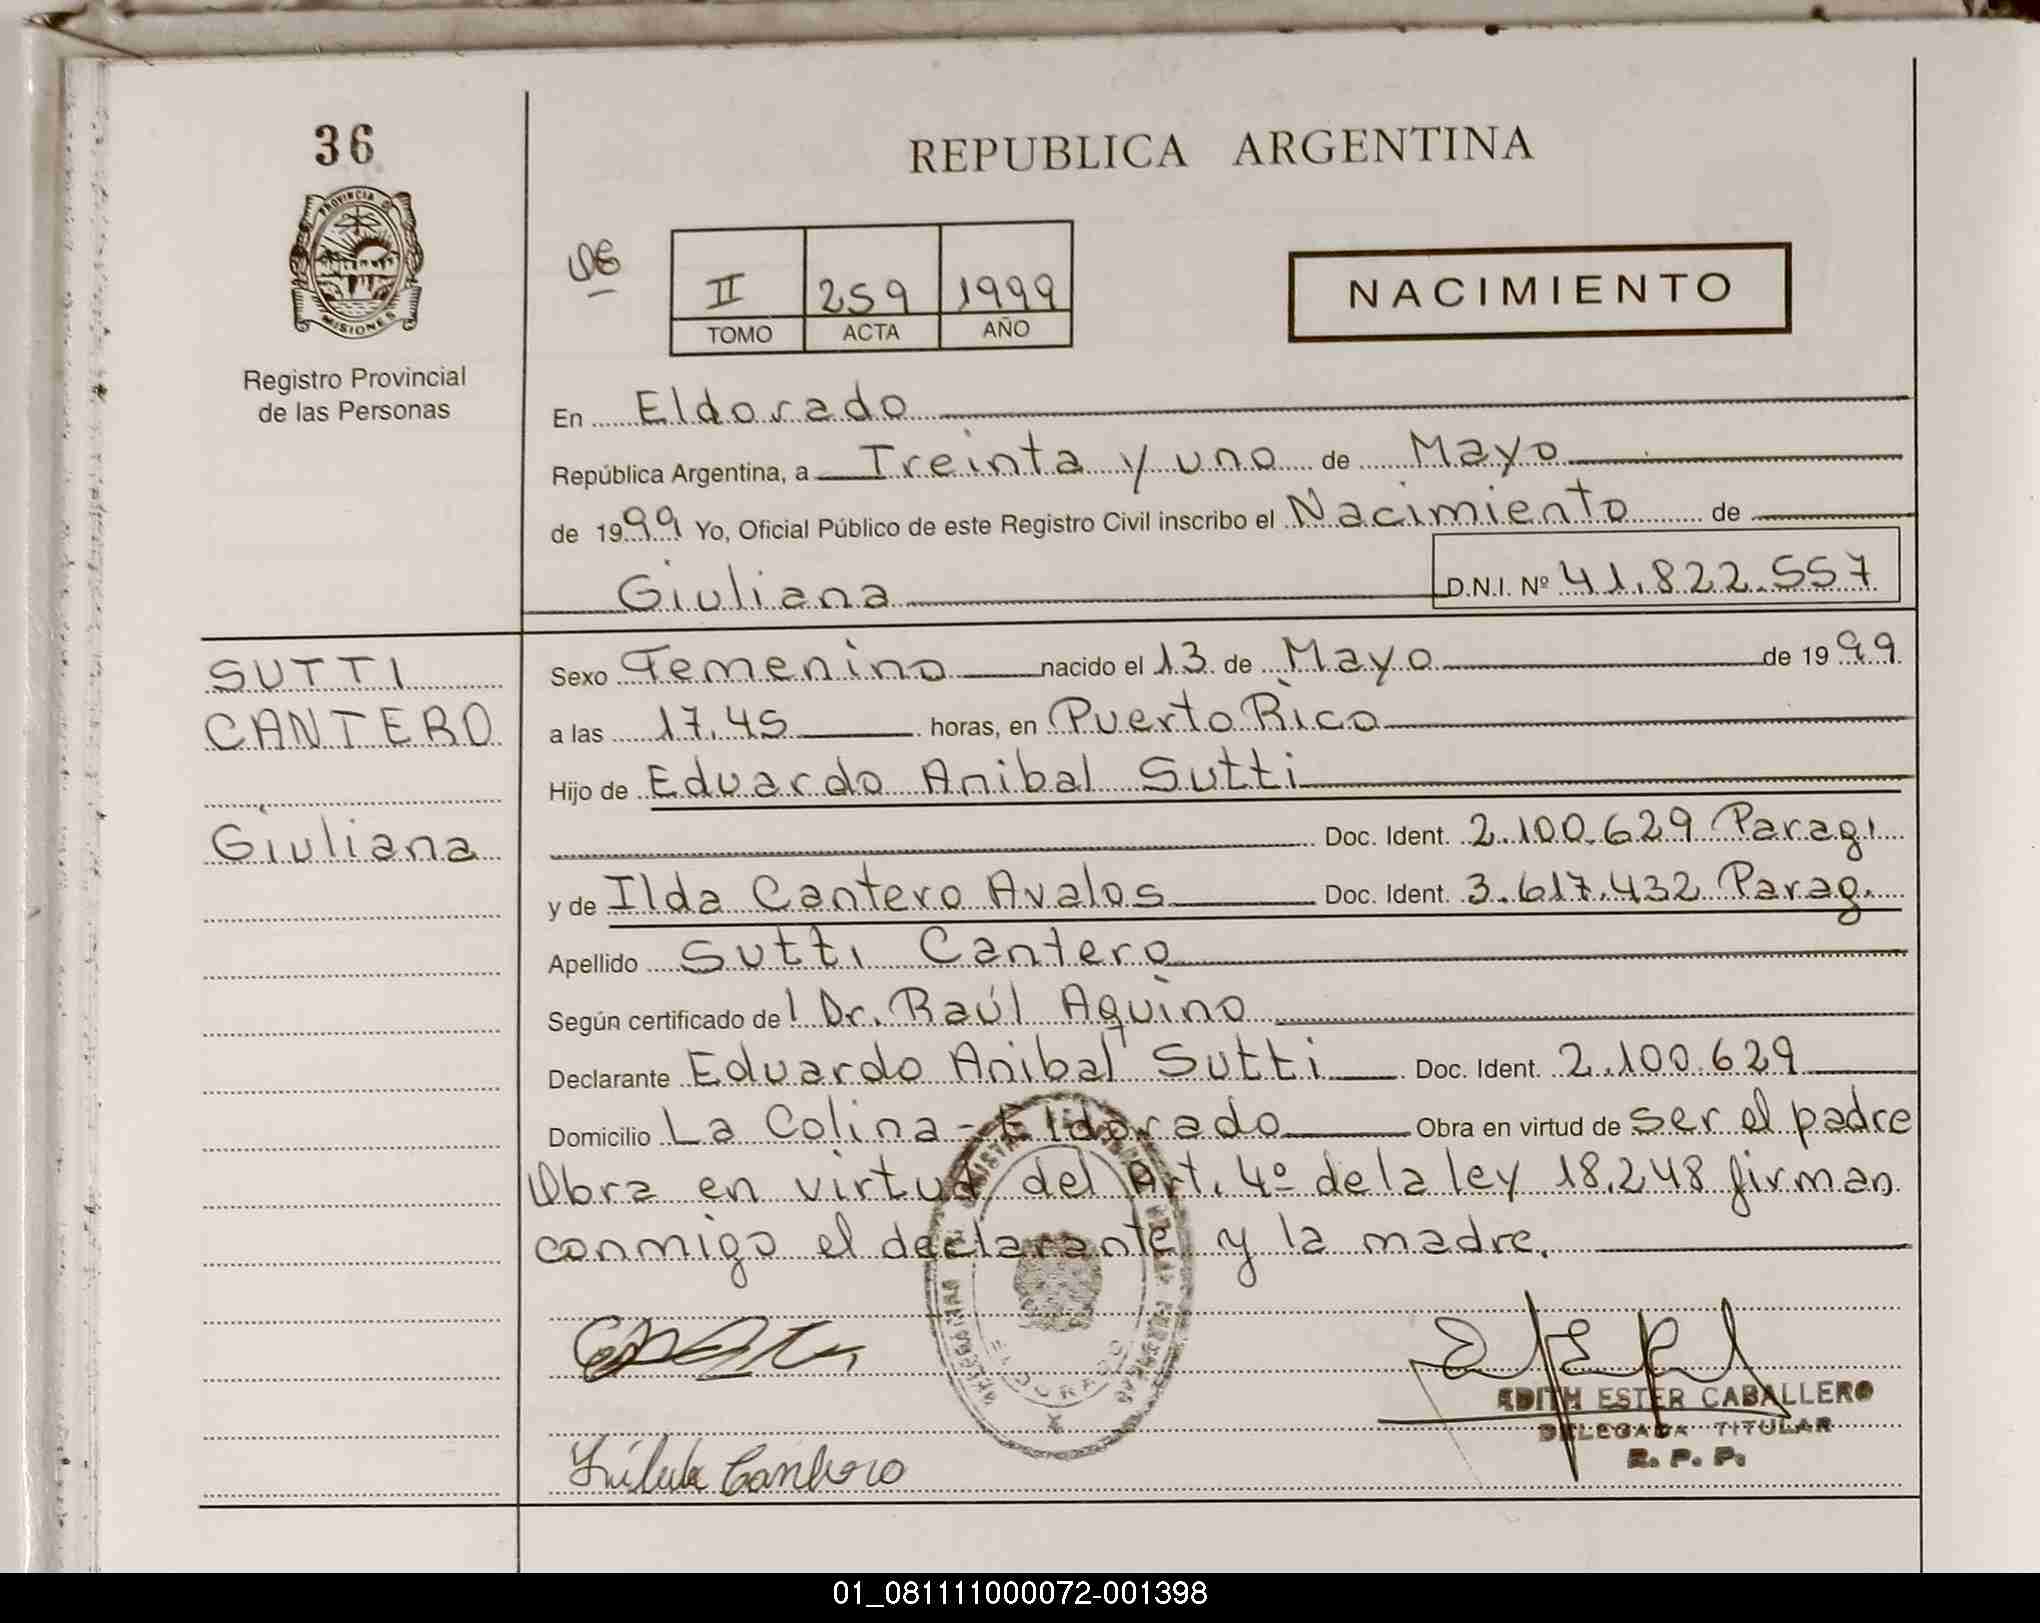 36
REPUBLICA ARGENTINA
PROVINCIA D
MISIONES
II 259 1999
TOMO ACTA AÑO
NACIMIENTO
Registro Provincial
de las Personas
En Eldorado
República Argentina, a Treinta y uno de Mayo
de 1999 Yo, Oficial Público de este Registro Civil inscribo el Nacimiento de
Giuliana D.N.I. Nº 41.822.557
SUTTI
CANTERO
Giuliana
Sexo Femenino nacido el 13 de Mayo de 1999
a las 17.45 horas, en Puerto Rico
Hijo de Eduardo Anibal Sutti
Doc. Ident. 2.100.629 Parag.
y de Ilda Cantero Avalos Doc. Ident. 3.617.432 Parag.
Apellido Sutti Cantero
Según certificado del Dr. Raúl Aquino
Declarante Eduardo Anibal Sutti Doc. Ident. 2.100.629
Domicilio La Colina - Eldorado Obra en virtud de ser el padre
Obra en virtud del Art. 4º de la ley 18.248 firman
conmigo el declarante y la madre.
ELDORADO
EDITH ESTER CABALLERO
DELEGADA TITULAR
R. P. P.
Cantero
01_081111000072-001398